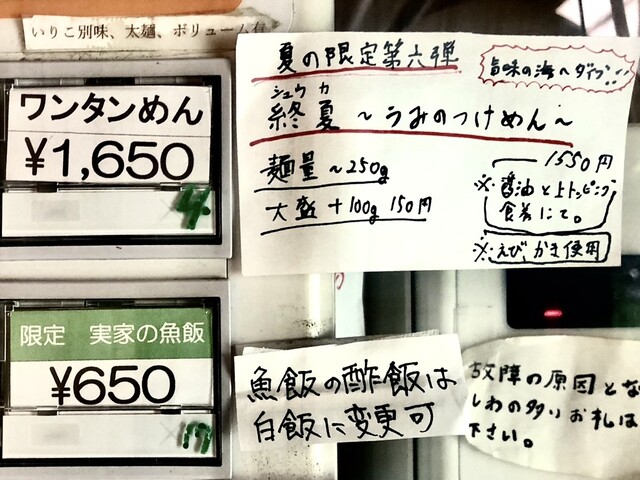 いりこ別味、太麺、ボリューム有
ワンタンめん
¥1,650
4
夏の限定第六弾
旨味の海へダイブ!!
シュウカ
終夏 ~うみのつけめん~
麺量~250g
大盛+100g 150円
1550円
※醤油と上トッピング
食券にて。
※えび、かき使用
限定 実家の魚飯
¥650
魚飯の酢飯は
白飯に変更可
故障の原因とな
しわの多いお札は
下さい。